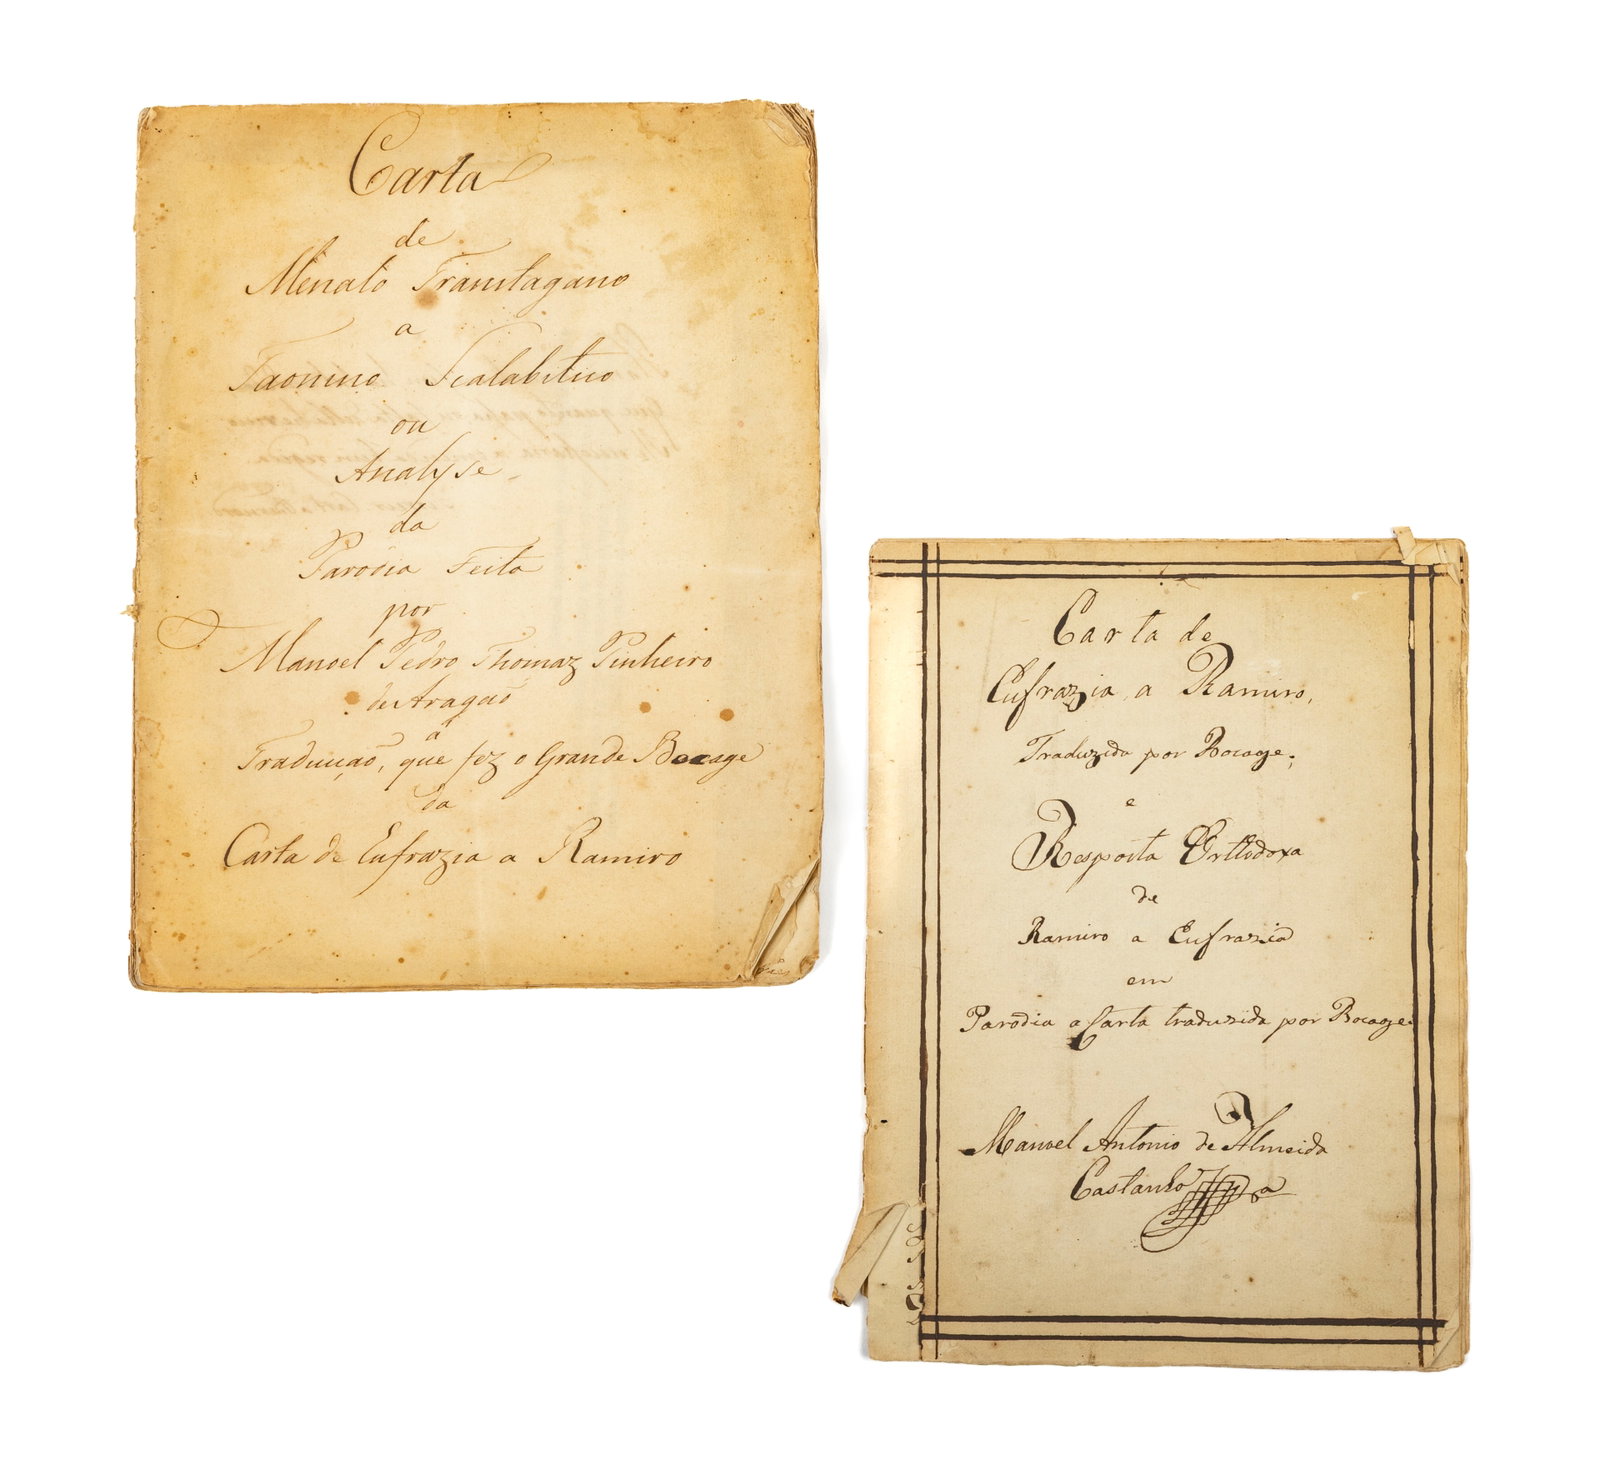 Carta
de
Menalo Transtagano
a
Taonino Scalabitico
ou
Analyse
da
Parodia Feita
por
Manoel Pedro Thomaz Pinheiro
de Aragaõ
á
Traducçaõ, que fez o Grande Bocage
da
Carta de Eufrazia a Ramiro
Carta de
Eufrazia a Ramiro,
Traduzida por Bocage;
e
Resposta Orthodoxa
de
Ramiro a Eufrazia
em
Parodia a Carta traduzida por Bocage.
Manoel Antonio de Almeida
Castanho